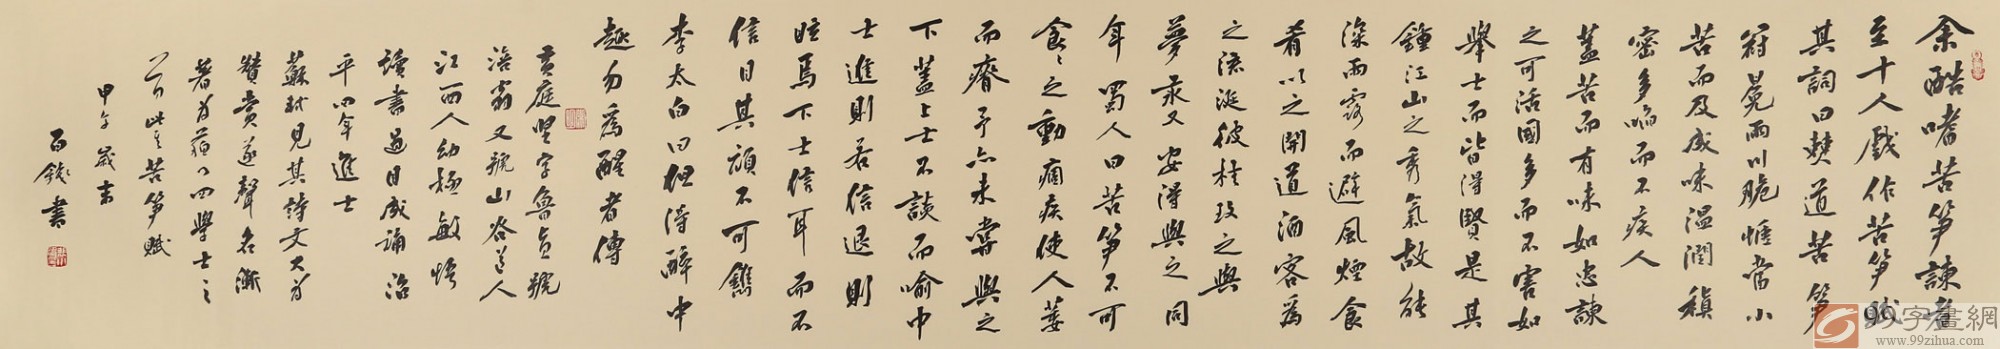 余酷嗜苦笋諫者
至十人戲作苦笋賦
其詞曰僰道苦笋
冠冕兩川脆愜當小
苦而反成味溫潤稹
密多啗而不疾人
蓋苦而有味如忠諫
之可活國多而不害如
舉士而皆得賢是其
鍾江山之秀氣故能
深雨露而避風煙食
肴以之開道酒客為
之流涎彼桂玫之與
夢永又安得與之同
年蜀人曰苦笋不可
食〻之動痼疾使人萎
而瘠予亦未嘗與之
下蓋上士不談而喻中
士進則若信退則
眩焉下士信耳而不
信目其頑不可鐫
李太白曰但得醉中
趣勿為醒者傳
黃庭堅字魯直號
涪翁又號山谷道人
江西人幼極敏悟
讀書過目成誦治
平四年進士
蘇軾見其詩文大為
贊賞遂聲名漸
著為蘇門四學士之
一 此 苦笋賦
甲午歲末
書
99字畫網
www.99zihua.com